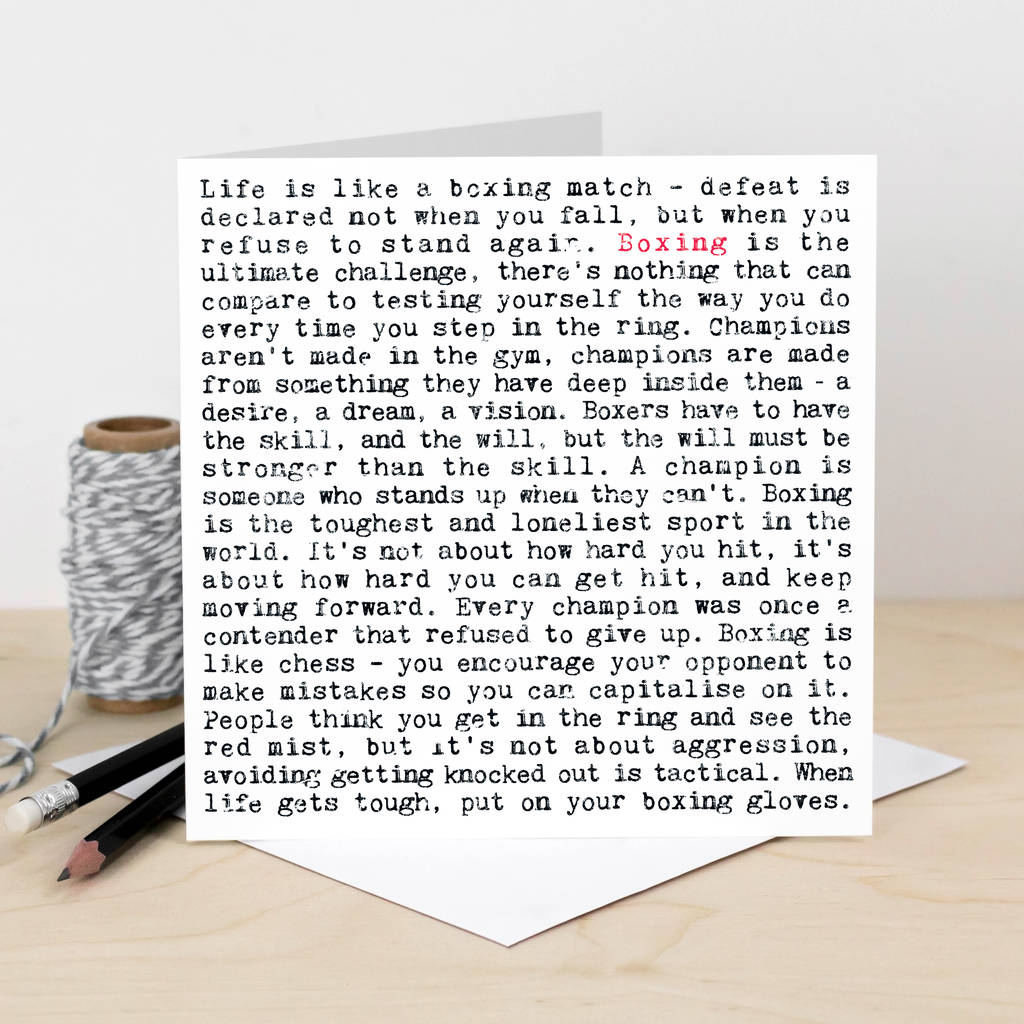 Life is like a boxing match - defeat is
declared not when you fall, but when you
refuse to stand again. Boxing is the
ultimate challenge, there's nothing that can
compare to testing yourself the way you do
every time you step in the ring. Champions
aren't made in the gym, champions are made
from something they have deep inside them - a
desire, a dream, a vision. Boxers have to have
the skill, and the will, but the will must be
stronger than the skill. A champion is
someone who stands up when they can't. Boxing
is the toughest and loneliest sport in the
world. It's not about how hard you hit, it's
about how hard you can get hit, and keep
moving forward. Every champion was once a
contender that refused to give up. Boxing is
like chess - you encourage your opponent to
make mistakes so you can capitalise on it.
People think you get in the ring and see the
red mist, but it's not about aggression,
avoiding getting knocked out is tactical. When
life gets tough, put on your boxing gloves.